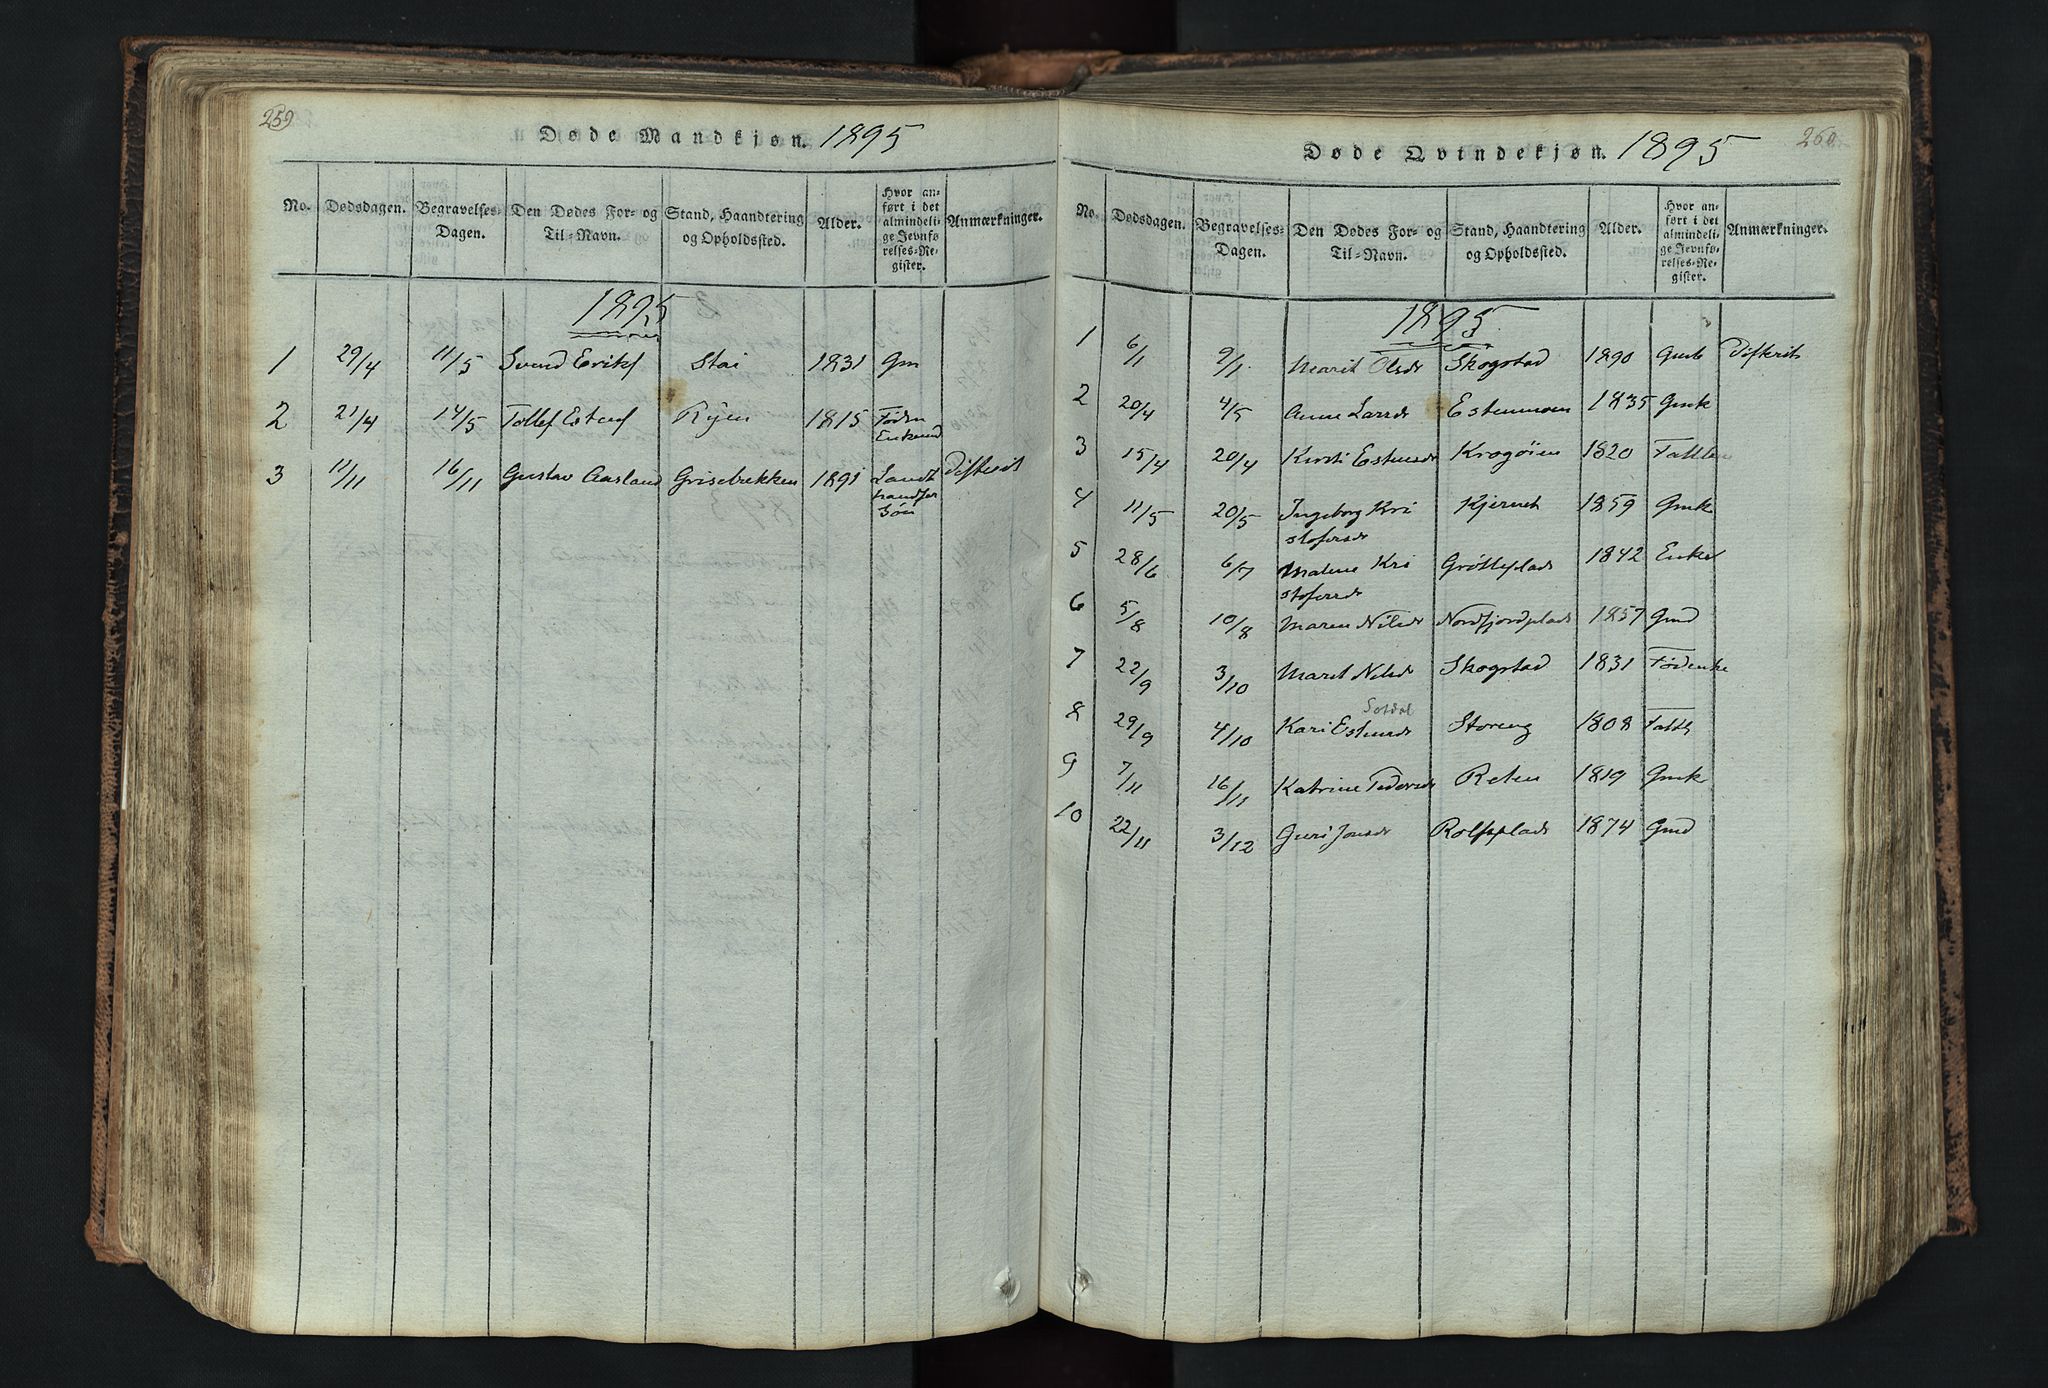 259
Døde Mandkjøn. 1895
No. Dødsdagen. Begravelses-Dagen. Den Dødes For- og Til-Navn. Stand, Haandtering og Opholdssted. Alder. Hvor anført i det almindelige Jevnførelses-Register. Anmærkninger.
1895
1 29/4 11/5 Svend Eriks Stai 1831 Gm
2 21/4 14/5 Tollef Estens Ryen 1815 Føder
Enkemd
3 11/11 16/11 Gustav Aasland Grisebækken 1891 Landt
handler
Søn Difterit
260
Døde Qvindekjøn. 1895
No. Dødsdagen. Begravelses-Dagen. Den Dødes For- og Til-Navn. Stand, Haandtering og Opholdssted. Alder. Hvor anført i det almindelige Jevnførelses-Register. Anmærkninger.
1895
1 6/1 9/1 Marit Olsdr Skogstad 1890 Difterit
2 20/4 4/5 Anne Larsdr Estenmoen 1835 Gmk
3 15/4 20/4 Kirsti Estensdr Krogøien 1820 Fattlem
4 11/5 20/5 Ingeborg Kri
stofersdr Kjernet 1859 Gmk
5 28/6 6/7 Malene Kri
stofersdr Grøtteplads 1842 Enke
6 5/8 10/8 Maren Nilsdr Nordfjordplads 1857 Gmd
7 22/9 3/10 Marit Nilsdr Skogstad 1831 Fødenke
8 29/9 4/10 Kari Estensdr Storeng 1808 Fattl
9 7/11 16/11 Katrine Pedersdr Reten 1819 Gmk
10 22/11 3/12 Guri Jonsdr Rolfsplads 1874 Gmd